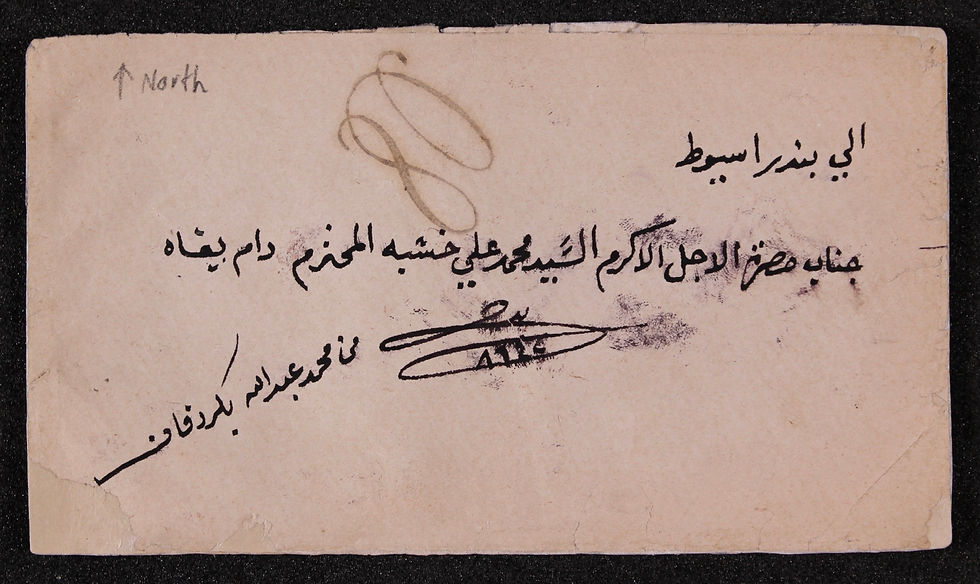 ↑ North
الي بندر اسيوط
جناب حضرة الاجل الاكرم السَّيد محمد علي خشبه المحترم دام بقاه
٨٦٤٢
من محمد عبدالله بكردفان